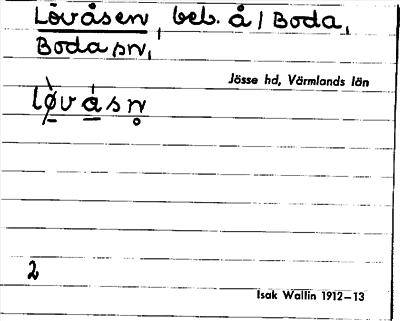 Lövåsen, beb. å / Boda,
Boda sn,
Jösse hd, Värmlands län
lø̀vásn̥
2
Isak Wallin 1912–13